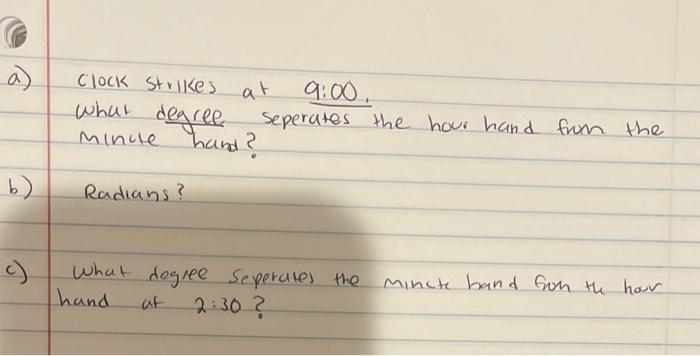 a) Clock strikes at 9:00.
What degree seperates the hour hand from the
minute hand?
b) Radians?
c) What degree seperates the minute hand from the hour
hand at 2:30?